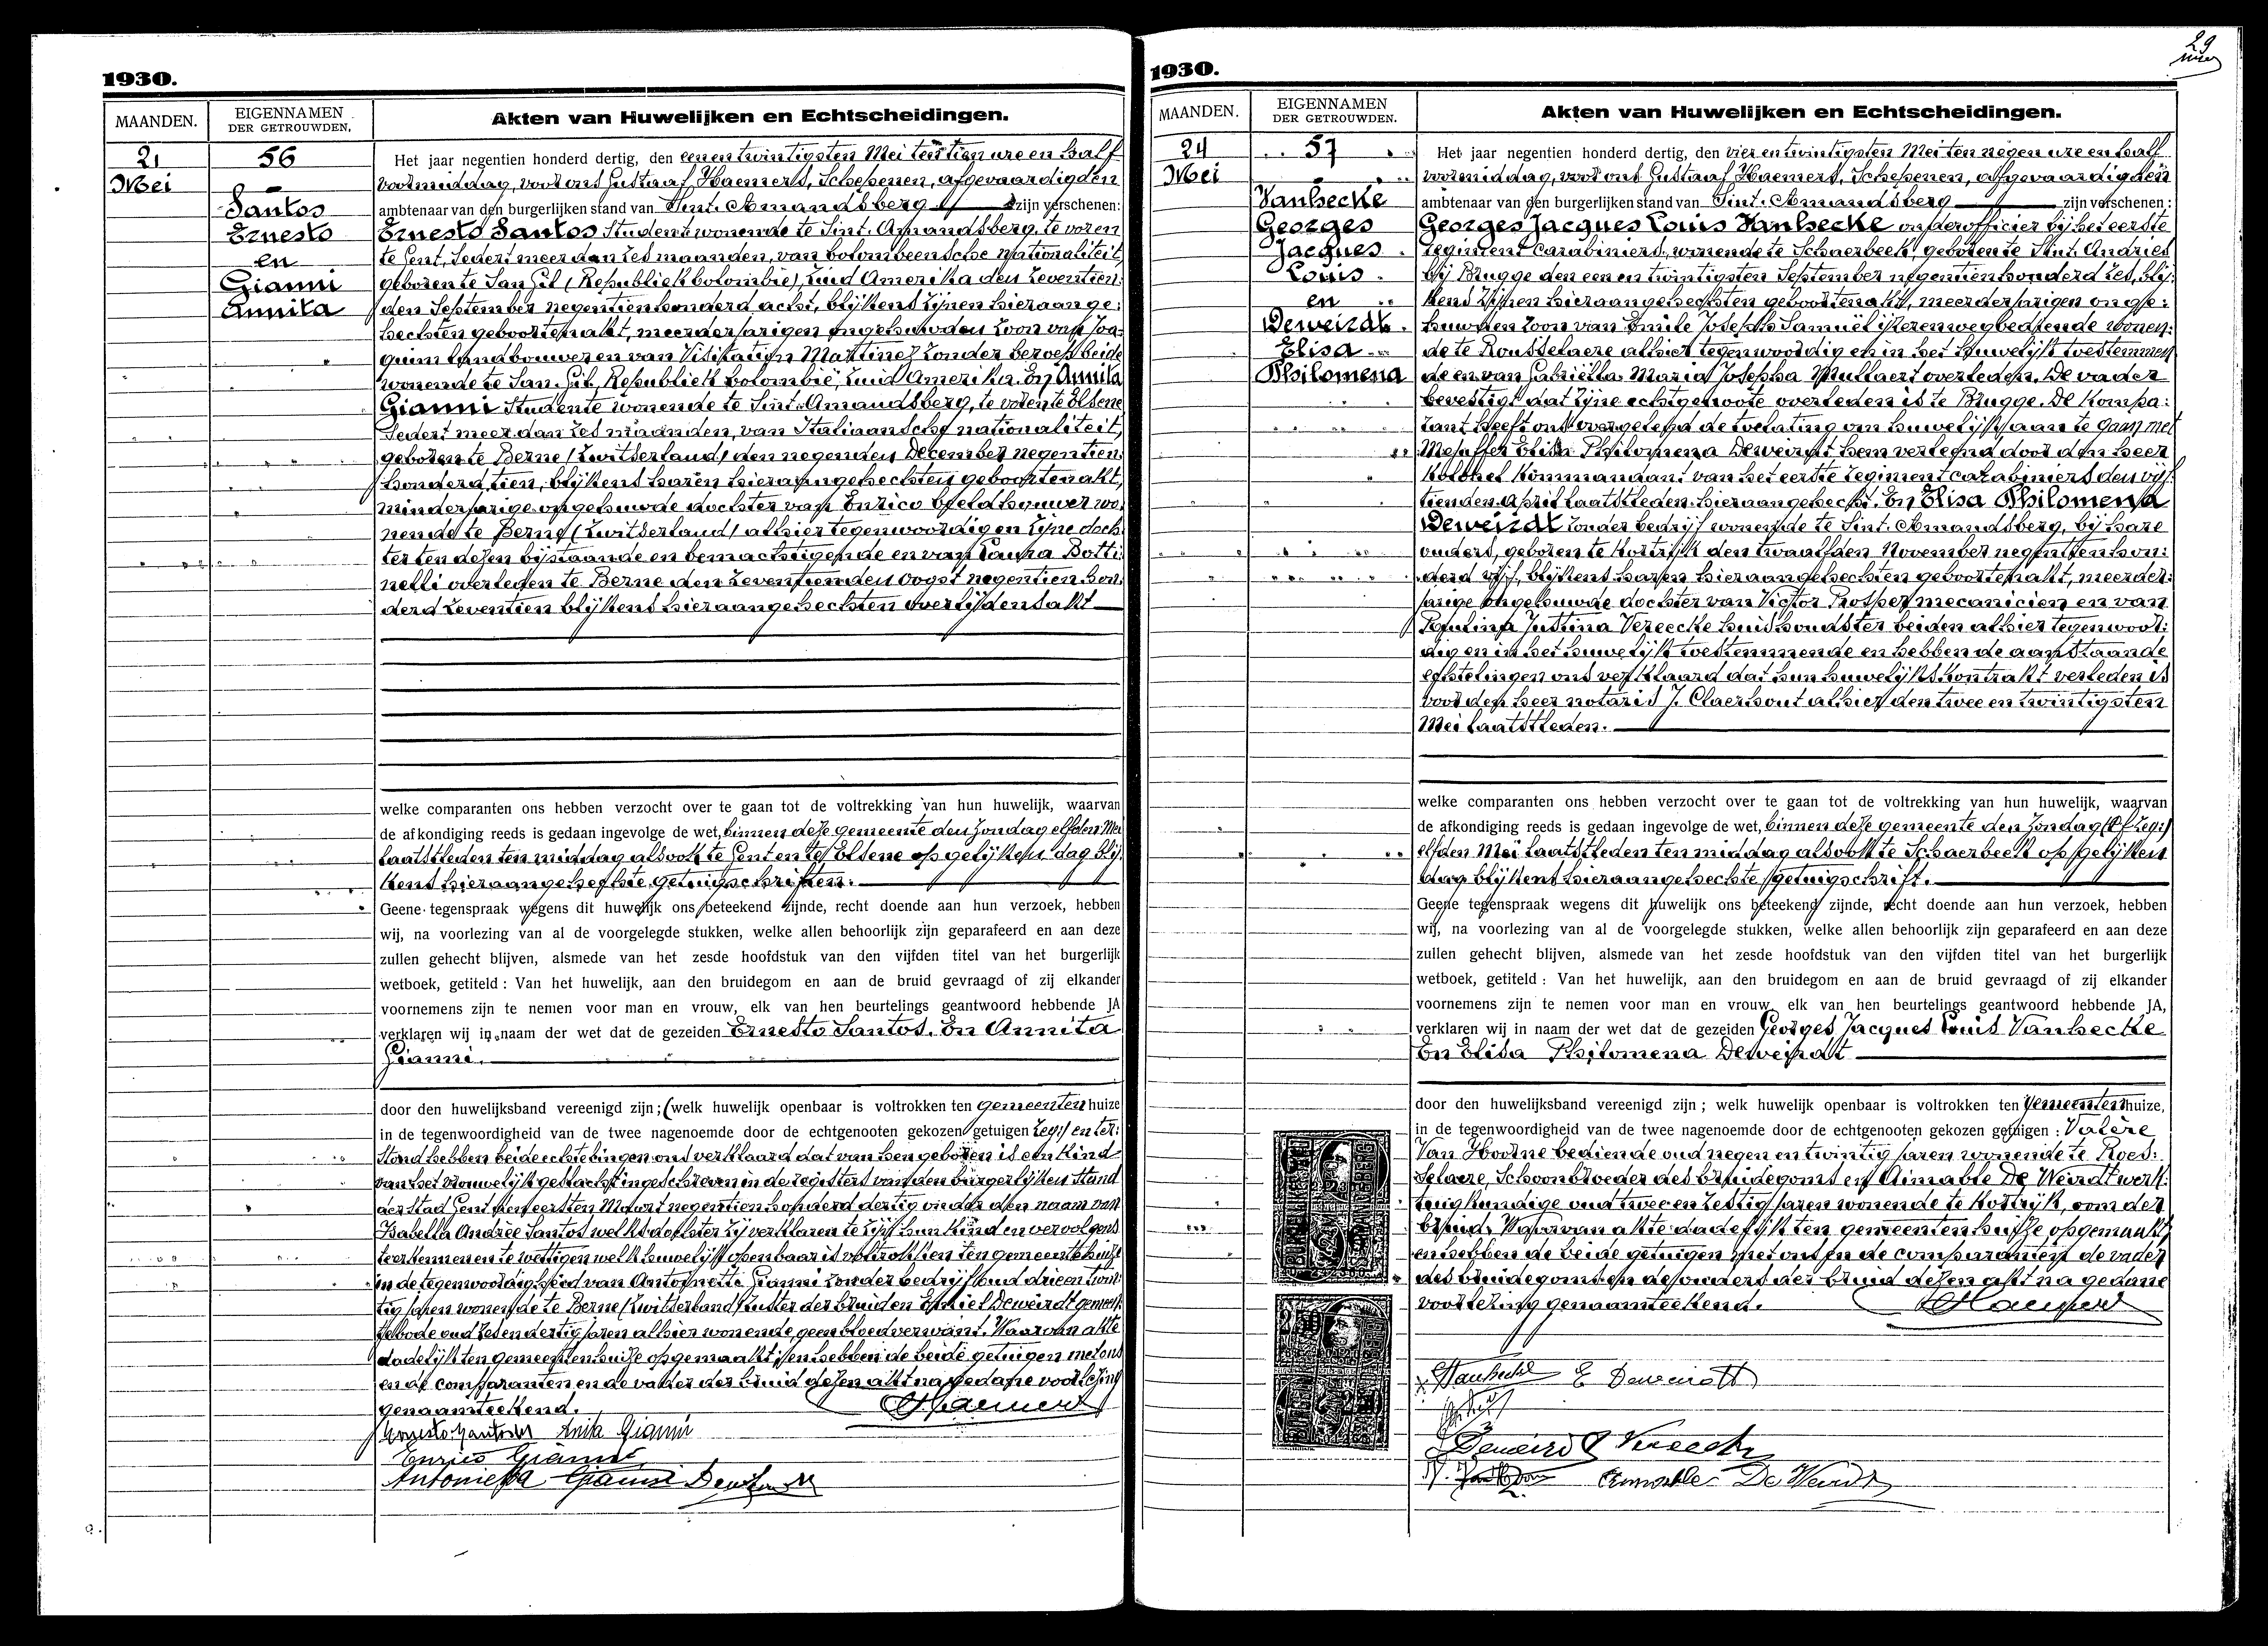 1930.
MAANDEN.
EIGENNAMEN
DER GETROUWDEN.
Akten van Huwelijken en Echtscheidingen.
21
Mei
56
Santos
Ernesto
en
Gianni
Annita
Het jaar negentien honderd dertig, den eenentwintigsten Mei ten tien ure en half
voormiddag, voor ons Gustaaf Haemers, Schepenen, afgevaardigden
ambtenaar van den burgerlijken stand van Sint-Amandsberg zijn verschenen:
Ernesto Santos Student wonende te Sint-Amandsberg, te voren
te Gent, Sedert meer dan zes maanden, van bolombeensche nationaliteit,
geboren te San Gil, (Republiek bolombie), Zuid Amerika den zeventien:
den September negentienhonderd acht, blijkens zijnen hieraange:
hechten geboortenakt, meerderjarigen ongehuwden zoon van Joa:
quim landbouwer en van Visitation Martinez zonder beroep beide
wonende te San Gil, Republiek bolombië, Zuid Amerika. En Annita
Gianni Studente wonende te Sint-Amandsberg, te voren te Olsene
Sedert meer dan zes maanden, van Italiaansche nationaliteit,
geboren te Berne (Zwitserland) den negenden December negentien
honderd tien, blijkens haren hieraangehechten geboortenakt,
minderjarige ongehuwde dochter van Enrico beeldhouwer wo:
nende te Berne (Zwitserland) alhier tegenwoordig en zijne doch:
ter ten dezen bijstaande en bemachtigende en van Laura Botti:
nelli overleden te Berne den zeventienden oogst negentien hon:
derd zeventien blijkens hieraangehechten overlijdensakt
welke comparanten ons hebben verzocht over te gaan tot de voltrekking van hun huwelijk, waarvan
de afkondiging reeds is gedaan ingevolge de wet, binnen deze gemeente den Zondag elfden Mei
laatstleden ten middag alsook te Gent en te Olsene op gelijken dag blij:
kens hieraangehechte getuigschriften.
Geene tegenspraak wegens dit huwelijk ons beteekend zijnde, recht doende aan hun verzoek, hebben
wij, na voorlezing van al de voorgelegde stukken, welke allen behoorlijk zijn geparafeerd en aan deze
zullen gehecht blijven, alsmede van het zesde hoofdstuk van den vijfden titel van het burgerlijk
wetboek, getiteld : Van het huwelijk, aan den bruidegom en aan de bruid gevraagd of zij elkander
voornemens zijn te nemen voor man en vrouw, elk van hen beurtelings geantwoord hebbende JA
verklaren wij in naam der wet dat de gezeiden Ernesto Santos. En Annita
Gianni.
door den huwelijksband vereenigd zijn; (welk huwelijk openbaar is voltrokken ten gemeentenhuize
in de tegenwoordigheid van de twee nagenoemde door de echtgenooten gekozen getuigen Zeg:) en ter:
Stond hebben beide echtelingen ons verklaard dat van hen geboren is een kind
van het vrouwelijk geslacht ingeschreven in de registers van den burgerlijken Stand
der Stad Gent den eersten Maart negentien honderd dertig onder den naam van
Isabella Andrée Santos welks dochter zij verklaren te zijn hun kind en vervolgens
te erkennen en te wettigen welk huwelijk openbaar is voltrokken ten gemeentehuize
in de tegenwoordigheid van Antoinetta Gianni zonder bedrijf oud drieentwin:
tig jaren wonende te Berne (Zwitserland) zuster der bruid en Emiel Deweirdt gemeen:
tebode oud zesendertig jaren alhier wonende geen bloedverwant. Waarvan akte
dadelijk ten gemeentenhuize opgemaakt, en hebben de beide getuigen met ons
en de comparanten en de vader der bruid dezen akt na gedane voorlezing
genaamteekend.
GHaemers
Ernesto Santos Anita Gianni
Enrico Gianni
Antonietta Gianni
1930.
29
MAANDEN.
EIGENNAMEN
DER GETROUWDEN.
Akten van Huwelijken en Echtscheidingen.
24
Mei
57
Vanhecke
Georges
Jacques
Louis
en
Deweirdt
Elisa
Philomena
Het jaar negentien honderd dertig, den vierentwintigsten Mei ten negen ure en half
voormiddag, voor ons Gustaaf Haemers, Schepenen, afgevaardigden
ambtenaar van den burgerlijken stand van Sint-Amandsberg zijn verschenen :
Georges Jacques Louis Vanhecke onderofficier bij het eerste
regiment carabiniers, wonende te Schaerbeek, geboren te Sint-Andries
bij Brugge den eenentwintigsten September negentienhonderd zes, blij:
kens zijnen hieraangehechten geboortenakt, meerderjarigen onge:
huwden zoon van Emile Joseph Samuël ijzerenwegbediende wonen:
de te Rousselaere alhier tegenwoordig en in het huwelijk toestemmen
de en van Gabriella Maria Josepha Mullaert overleden. De vader
bevestigt dat zijne echtgenoote overleden is te Brugge. De kompa:
rant heeft ons overgelegd de toelating om huwelijk aan te gaan met
Mejuffer Elisa Philomena Deweirdt hem verleend door den heer
Kolonel Kommandant van het eerste regiment carabiniers den vijf:
tienden April laatstleden, hieraangehecht. En Elisa Philomena
Deweirdt zonder bedrijf wonende te Sint-Amandsberg, bij hare
ouders, geboren te Kortrijk den twaalfden November negentienhon:
derd vijf, blijkens haren hieraangehechten geboortenakt, meerder:
jarige ongehuwde dochter van Victor Prosper mecanicien en van
Paulina Justina Vereecke huishoudster beiden alhier tegenwoor:
dig en in het huwelijk toestemmende en hebben de aanstaande
echtelingen ons verklaard dat hun huwelijkskontrakt verleden is
voor den heer notaris J. Claerhout alhier den twee en twintigsten
Mei laatstleden.
welke comparanten ons hebben verzocht over te gaan tot de voltrekking van hun huwelijk, waarvan
de afkondiging reeds is gedaan ingevolge de wet, binnen deze gemeente den Zondag
elfden Mei laatstleden ten middag alsook te Schaerbeek op gelijken
dag blijkens hieraangehechte getuigschrift.
Geene tegenspraak wegens dit huwelijk ons beteekend zijnde, recht doende aan hun verzoek, hebben
wij, na voorlezing van al de voorgelegde stukken, welke allen behoorlijk zijn geparafeerd en aan deze
zullen gehecht blijven, alsmede van het zesde hoofdstuk van den vijfden titel van het burgerlijk
wetboek, getiteld : Van het huwelijk, aan den bruidegom en aan de bruid gevraagd of zij elkander
voornemens zijn te nemen voor man en vrouw, elk van hen beurtelings geantwoord hebbende JA,
verklaren wij in naam der wet dat de gezeiden Georges Jacques Louis Vanhecke
En Elisa Philomena Deweirdt
door den huwelijksband vereenigd zijn ; welk huwelijk openbaar is voltrokken ten gemeentenhuize,
in de tegenwoordigheid van de twee nagenoemde door de echtgenooten gekozen getuigen : Valère
Van Hoorne bediende oud negen en twintig jaren wonende te Roes:
selaere, Schoonbroeder des bruidegoms en Aimable De Weirdt werk:
tuigkundige oud twee en zestig jaren wonende te Kortrijk, oom der
bruid. Waarvan akte dadelijk ten gemeentenhuize opgemaakt,
en hebben de beide getuigen met ons en de comparanten de vader
des bruidegoms en de ouders der bruid dezen akt na gedane
voorlezing genaamteekend.
GHaemers
Vanhecke E Deweirdt
Deweirdt Vereecke
Aimable De Weirdt